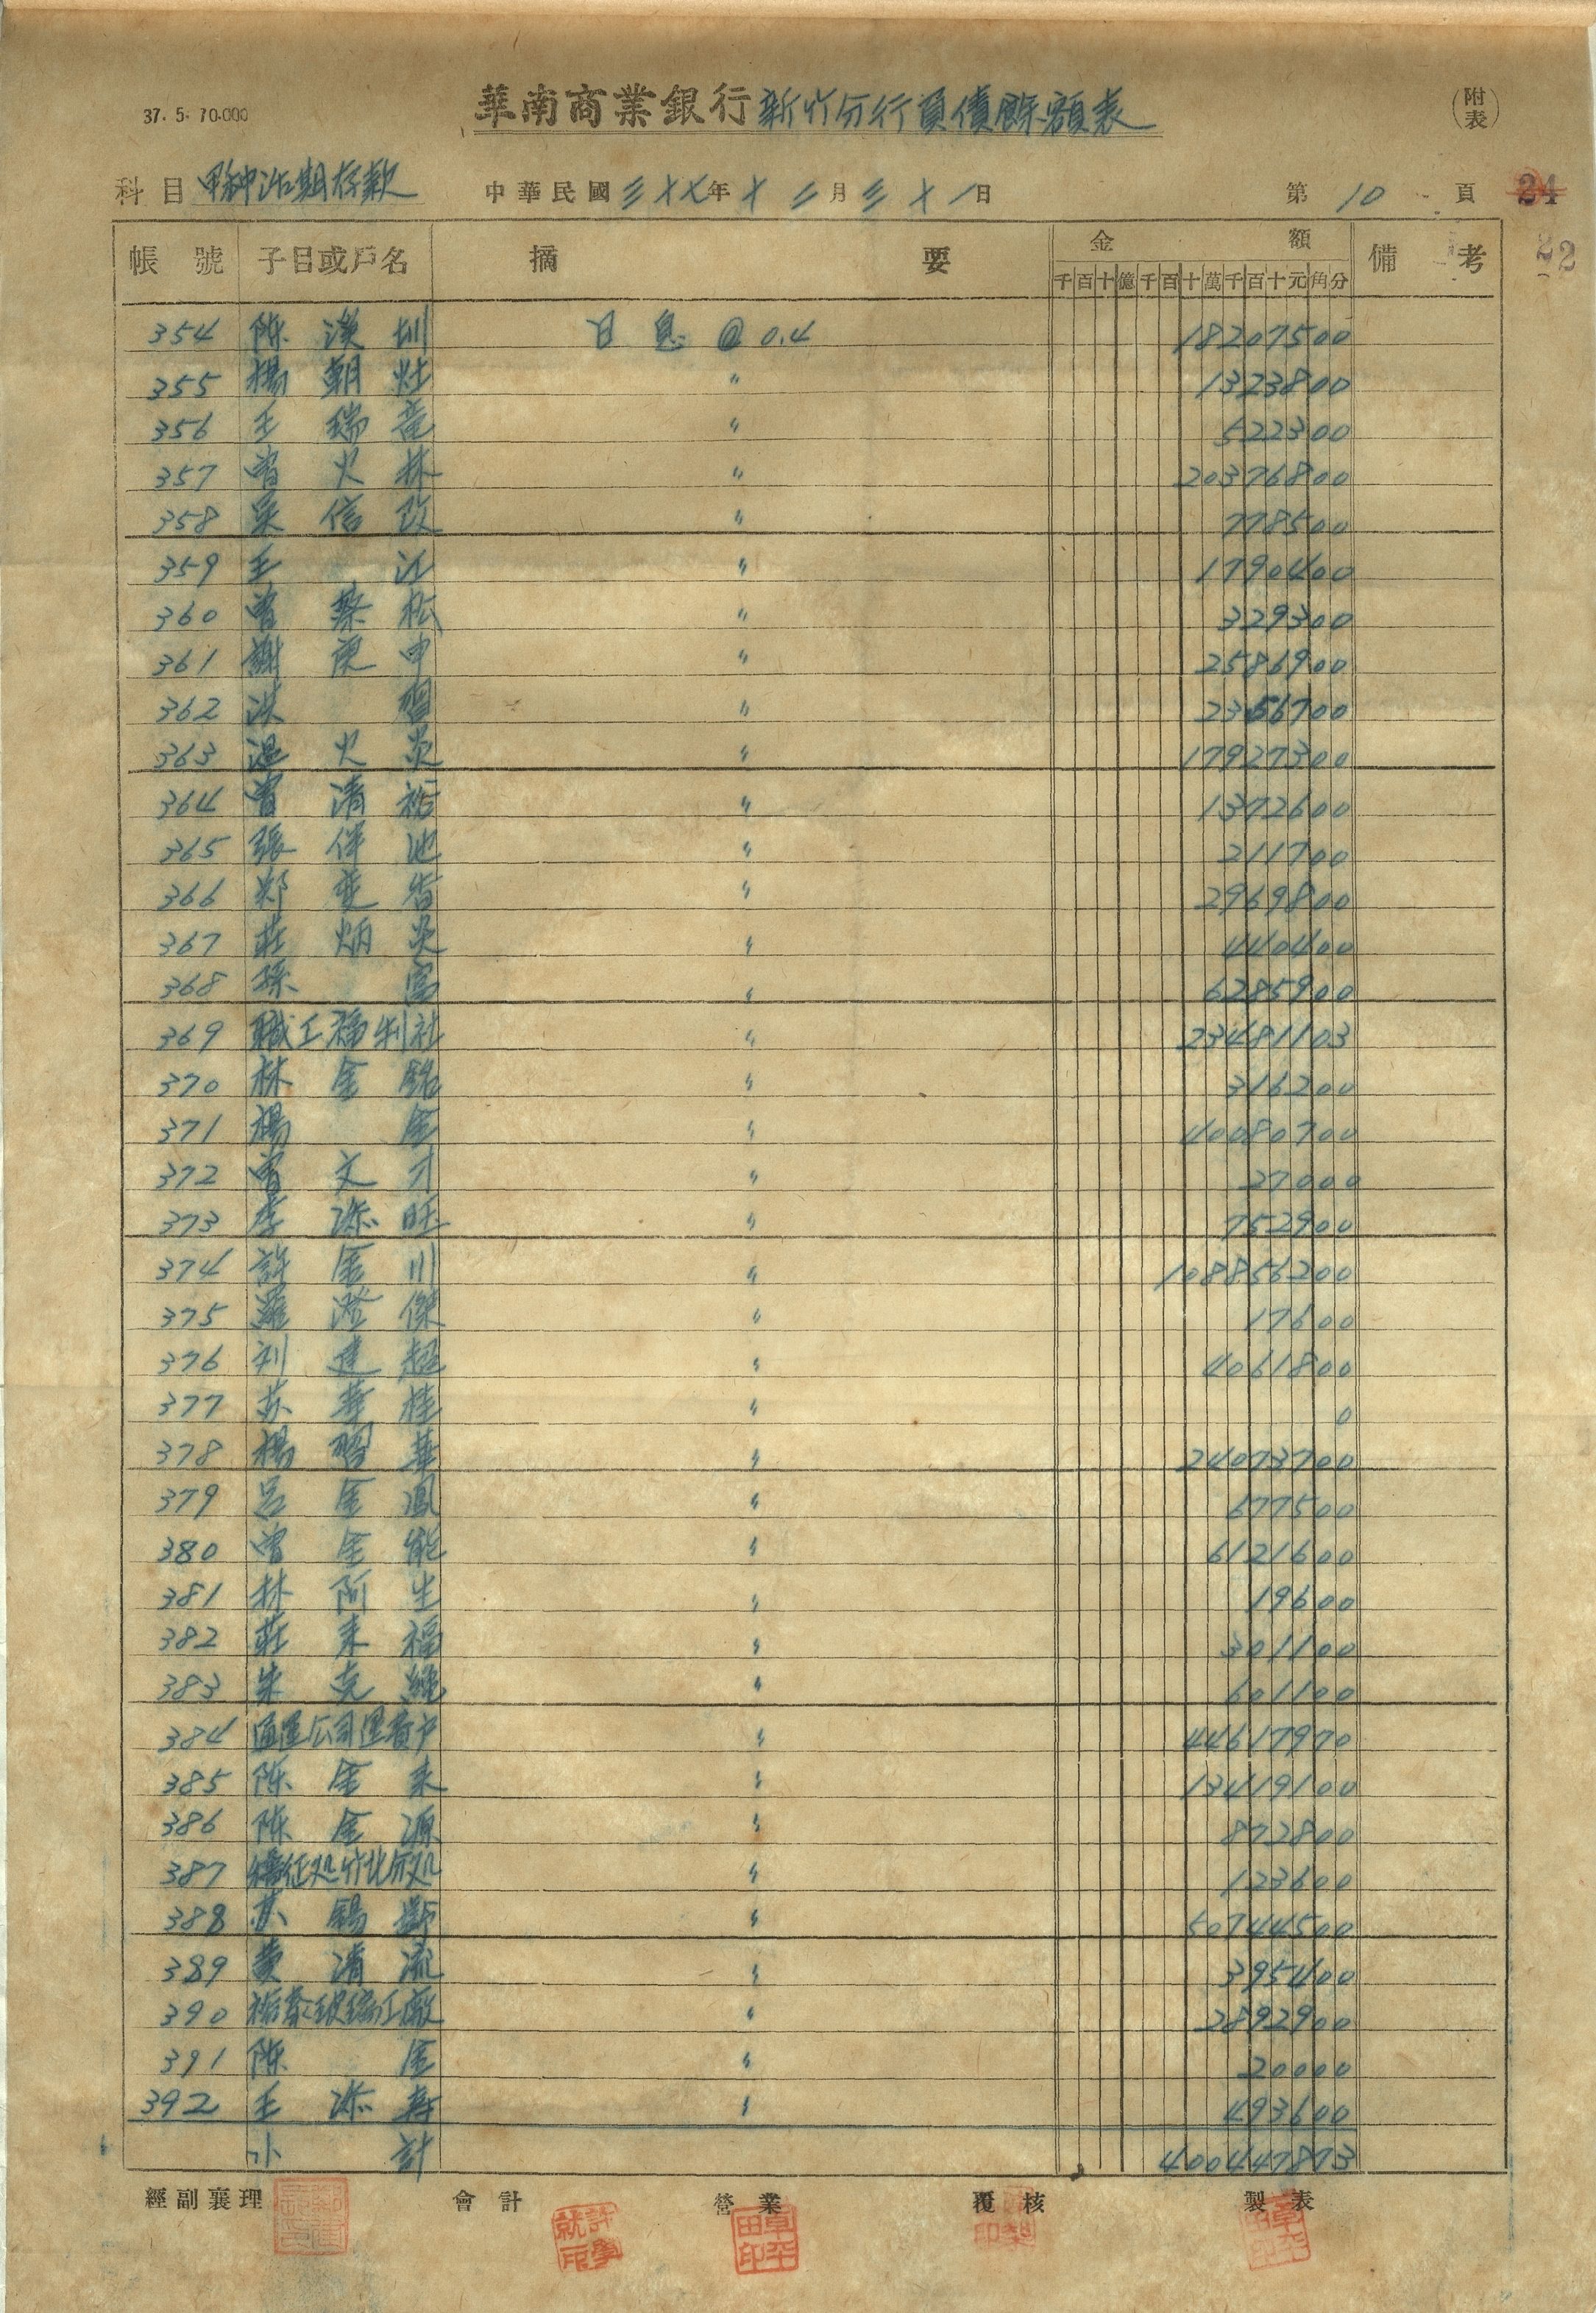 37. 5. 70.000
華南商業銀行新竹分行負債餘額表
(附表)
科目 甲種活期存款 中華民國三十七年十二月三十一日 第10頁 24
22
帳號 子目或戶名 摘要 金額 備考
千百十億千百十萬千百十元角分
354 陳漢圳 日息@0.4 18207500
355 楊朝灶 〃 1323800
356 王瑞竜 〃 522300
357 曾火林 〃 20376800
358 吳信政 〃 778500
359 王江 〃 1790400
360 曾蔡松 〃 329300
361 謝庚申 〃 2586900
362 洪 〃
363 温火炎 〃 17927300
364 曾清裕 〃 1372600
365 張伴池 〃 211700
366 鄭變香 〃 2969800
367 莊炳炎 〃 440400
368 孫富 〃 6285900
369 職工福利社 〃 23481103
370 林金銘 〃 316200
371 楊金 〃 40080700
372 曾文才 〃 27000
373 李添旺 〃 752900
374 許金川 〃 108856200
375 羅澄傑 〃 17600
376 刘建超 〃 4061800
377 苏華桂 〃 0
378 楊習華 〃 24073700
379 呂金鳳 〃 677500
380 曾金能 〃 6121600
381 林阿生 〃 19600
382 莊来福 〃 301100
383 朱克繩 〃 601100
384 通運公司運費户 〃 44617970
385 陳金来 〃 13419100
386 陳金源 〃 872800
387 稽征処竹北分処 〃 123600
388 苏錫 〃 50744500
389 黄清流 〃 395400
390 裕泰玻璃工廠 〃 2892900
391 陳金 〃 20000
392 王添壽 〃 493600
小計 400447873
經副襄理 會計 營業 覆核 製表
許學就印
卓平田印
卓平田印